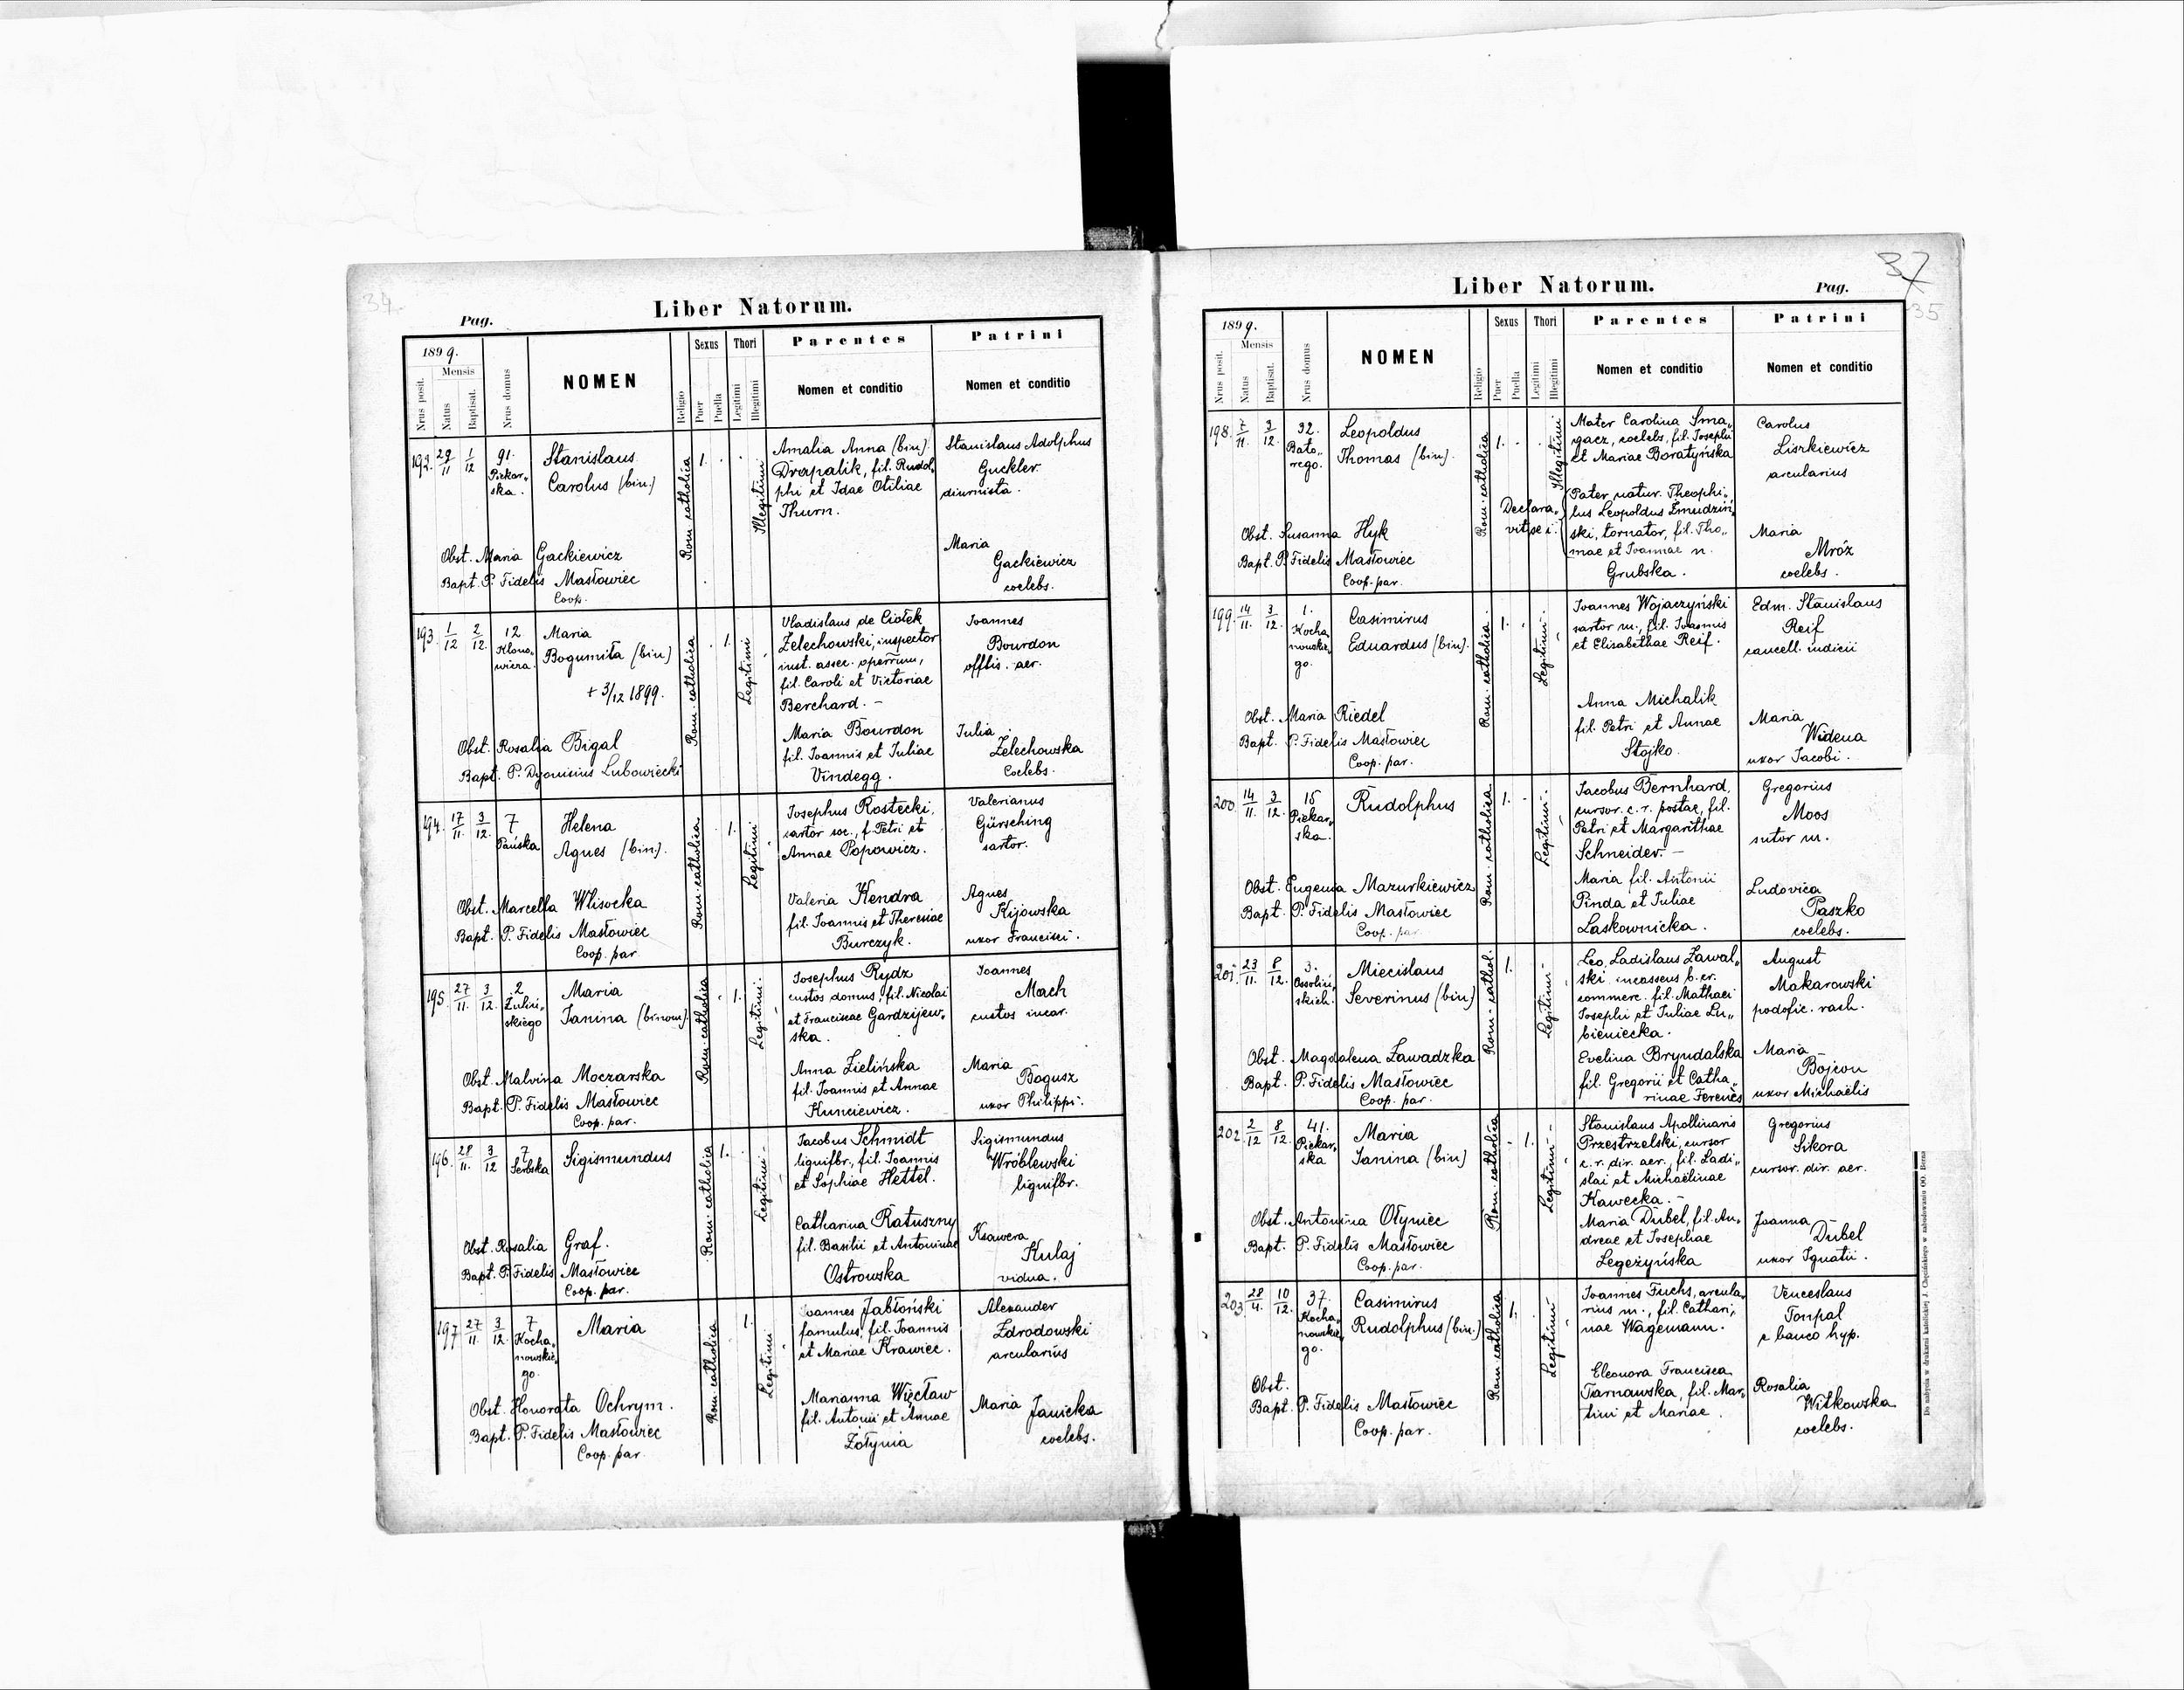 34.
Pag.
Liber Natorum.
1899.
Nrus posit.
Mensis
Natus
Baptisat.
Nrus domus
NOMEN
Religio
Sexus
Puer
Puella
Thori
Legitimi
Illegitimi
Parentes
Nomen et conditio
Patrini
Nomen et conditio
192. 29/11 1/12
91.
Piekar„
ska.
Stanislaus
Carolus (bin.)
Obst. Maria Gackiewicz
Bapt. P. Fidelis Masłowiec
Coop.
Rom. catholica
1.
Illegitimi
Amalia Anna (bin)
Drapalik, fil. Rudol„
phi et Idae Otiliae
Thurn.
Stanislaus Adolphus
Guckler
diurnista.
Maria
Gackiewicz
coelebs.
193. 1/12 2/12.
12
Klono„
wicza
Maria
Bogumiła (bin)
+ 3/12 1899.
Obst. Rosalia Bigal
Bapt. P. Dyonisius Lubowiecki
Rom. catholica
1.
Legitimi
Vladislaus de Ciołek
Zelechowski, inspector
inst. assec. operrum,
fil. Caroli et Victoriae
Berchard. –
Maria Bourdon
fil. Ioannis et Iuliae
Vindegg.
Ioannes
Bourdon
offlis. aer.
Iulia
Zelechowska
Coelebs.
194. 17/11. 3/12.
7
Pańska
Helena
Agnes (bin.)
Obst. Marcella Wlisocka
Bapt. P. Fidelis Masłowiec
Coop. par
Rom. catholica
1.
Legitimi
Iosephus Rostecki,
sartor soc., f. Petri et
Annae Popowicz.
Valeria Kendra
fil. Ioannis et Theresiae
Burczyk.
Valerianus
Gürsching
sartor.
Agnes
Kijowska
uxor Francisci.
195. 27/11. 3/12.
2
Żuliń„
skiego
Maria
Ianina (binom).
Obst. Malvina Moczarska
Bapt. P. Fidelis Masłowiec
Coop. par.
Rom. catholica
1.
Legitimi
Iosephus Rydz
custos domus, fil. Nicolai
et Franciscae Gardzijew„
ska.
Anna Zielińska
fil. Ioannis et Annae
Kunciewicz.
Ioannes
Mach
custos incar.
Maria
Bogusz
uxor Philippi.
196. 28/11. 3/12
7
Serbska
Sigismundus
Obst. Rosalia Graf.
Bapt. P. Fidelis Masłowiec
Coop. par.
Rom. catholica
1.
Legitimi
Iacobus Schmidt
lignifbr., fil. Ioannis
et Sophiae Hettel.
Catharina Ratuszny
fil. Basilii et Antoninae
Ostrowska
Sigismundus
Wróblewski
lignifbr.
Ksawera
Kulaj
vidua.
197 27/11. 3/12.
7
Kocha„
nowskie„
go.
Maria
Obst. Honorata Ochrym.
Bapt. P. Fidelis Masłowiec
Coop. par.
Rom. catholica
1.
Legitimi
Ioannes Jabłoński
famulus, fil. Ioannis
et Mariae Krawiec.
Marianna Więcław
fil. Antonii et Annae
Żołynia
Alexander
Zdrodowski
arcularius
Maria Janicka
coelebs.
37
35
Liber Natorum.
Pag.
1899.
Nrus posit.
Mensis
Natus
Baptisat.
Nrus domus
NOMEN
Religio
Sexus
Puer
Puella
Thori
Legitimi
Illegitimi
Parentes
Nomen et conditio
Patrini
Nomen et conditio
198. 7/11. 3/12.
32.
Bato„
rego.
Leopoldus
Thomas (bin).
Obst. Susanna Hyk
Bapt. P. Fidelis Masłowiec
Coop. par.
Rom. catholica
1.
Illegitimi
Declara„
vit se i.
Mater Carolina Sma„
gacz, coelebs, fil. Josephi
et Mariae Boratyńska
Pater natur. Theophi„
lus Leopoldus Żmudziń„
ski, tornator, fil. Tho„
mae et Ioannae n.
Grubska.
Carolus
Liszkiewicz
arcularius
Maria
Mróz
coelebs.
199. 14/11. 3/12.
1.
Kocha„
nowskie„
go.
Casimirus
Eduardus (bin).
Obst. Maria Riedel
Bapt. P. Fidelis Masłowiec
Coop. par.
Rom. catholica
1.
Legitimi
Ioannes Wojaczyński
sartor m., fil. Ioannis
et Elisabethae Reif.
Anna Michalik
fil. Petri et Annae
Stojko.
Edm. Stanislaus
Reif
cancell. iudicii
Maria
Widena
uxor Iacobi.
200. 14/11. 3/12.
15
Piekar„
ska.
Rudolphus
Obst. Eugenia Mazurkiewicz
Bapt. P. Fidelis Masłowiec
Coop. par.
Rom. catholica
1.
Legitimi
Iacobus Bernhard,
cursor. c. r. postae, fil.
Petri et Margarithae
Schneider. –
Maria fil. Antonii
Pinda et Iuliae
Laskownicka.
Gregorius
Moos
sutor m.
Ludovica
Paszko
coelebs.
201. 23/11. 8/12.
3.
Ossoliń„
skich.
Miecislaus
Severinus (bin)
Obst. Magdalena Zawadzka
Bapt. P. Fidelis Masłowiec
Coop. par.
Rom. cathol.
1.
Legitimi
Leo, Ladislaus Zawal„
ski incasseus b. cr.
commerc. fil. Mathaei
Iosephi et Iuliae Lu„
bieniecka.
Evelina Bryndalska
fil. Gregorii et Catha„
rinae Ferencs
August
Makarowski
podofic. rach.
Maria
Bojcou
uxor Michaëlis
202. 2/12 8/12.
41.
Piekar„
ska
Maria
Ianina (bin)
Obst. Antonina Ołyniec
Bapt. P. Fidelis Masłowiec
Coop. par.
Rom. catholica
1.
Legitimi
Stanislaus Apollinaris
Przestrzelski, cursor
c. r. dir. aer., fil. Ladi„
slai et Michaëlinae
Kawecka. –
Maria Dubel, fil. An„
dreae et Iosephae
Legeżyńska
Gregorius
Sikora
cursor. dir. aer.
Joanna
Dubel
uxor Ignatii.
203 28/4. 10/12.
37.
Kocha„
nowskie„
go.
Casimirus
Rudolphus (bin.)
Obst.
Bapt. P. Fidelis Masłowiec
Coop. par.
Rom. catholica
1.
Legitimi
Ioannes Fuchs, arcula„
rius m., fil. Cathari„
nae Wagemann.
Eleonora Francisca
Tarnawska, fil. Mar„
tini et Mariae.
Venceslaus
Tonpal
e banco hyp.
Rosalia
Witkowska
coelebs.
Do nabycia w drukarni katolickiej J. Chęcińskiego w zabudowaniu OO. Berna